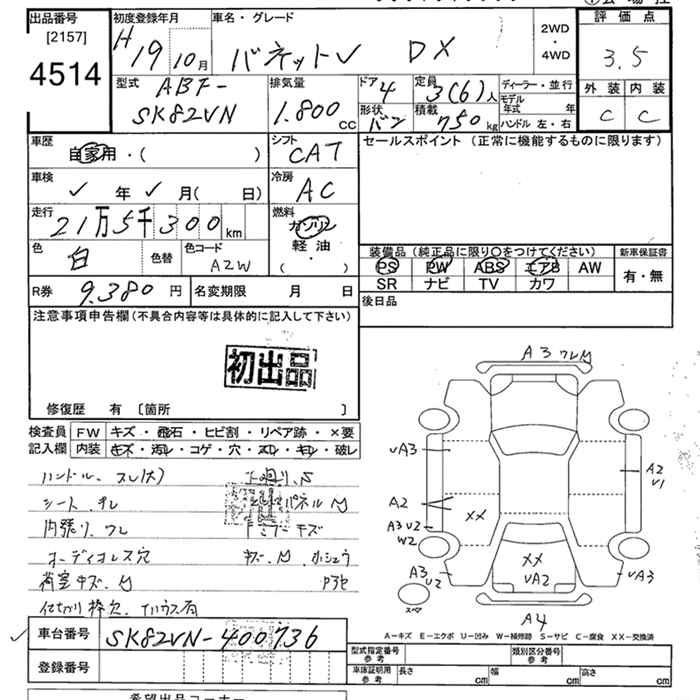 出品番号
[2157]
4514
初度登録年月
H19 10月
車名・グレード
バネットV DX
2WD
・
4WD
評価点
3.5
外装 内装
C C
型式
ABF-
SK82VN
排気量
1.800 cc
ドア
4
形状
バン
定員
3(6)人
積載
750kg
ディーラー・並行
モデル年式 年
ハンドル 左・右
車歴
自家用・( )
シフト
CAT
セールスポイント (正常に機能するものに限ります)
車検
年 月( 日)
冷房
AC
走行
21万5千300km
燃料
ガソリン
軽油
・
( )
色
白
色替
色コード
A2W
装備品 (純正品に限り○をつけてください)
PS PW ABS エアB AW
SR ナビ TV カワ
新車保証書
有・無
R券 9.380円
名変期限 月 日
後日品
注意事項申告欄 (不具合内容等は具体的に記入して下さい)
初出品
修復歴 有 [箇所 ]
検査員
記入欄
FW キズ・飛石・ヒビ割・リペア跡・×要
内装 キズ・汚レ・コゲ・穴・スレ・キレ・破レ
ハンドル、スレ(大)
下廻り、S
シート、チレ
パネルM
内張り、ワレ
キズ
オーディオレス穴
キズ、M
荷室キズ、M
車台番号 SK82VN-400736
登録番号
A3ワレM
vA3
A2
v1
A2
××
A3 v2
W2
A3
v2
××
vA2
vA3
スペア
A4
A-キズ E-エクボ U-凹み W-補修跡 S-サビ C-腐食 XX-交換済
型式指定番号
参考
類別区分番号
参考
車庫証明用
参考
長さ cm 幅 cm 高さ cm
希望出品コーナー